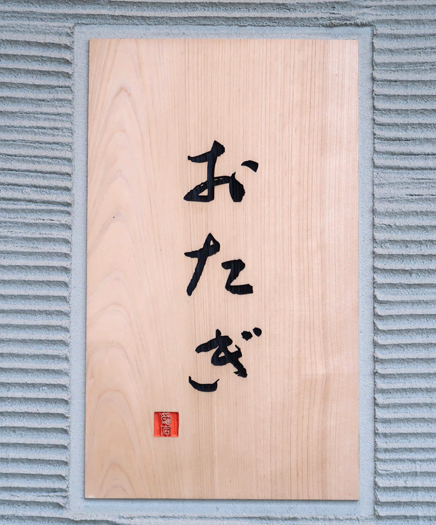 おたぎ